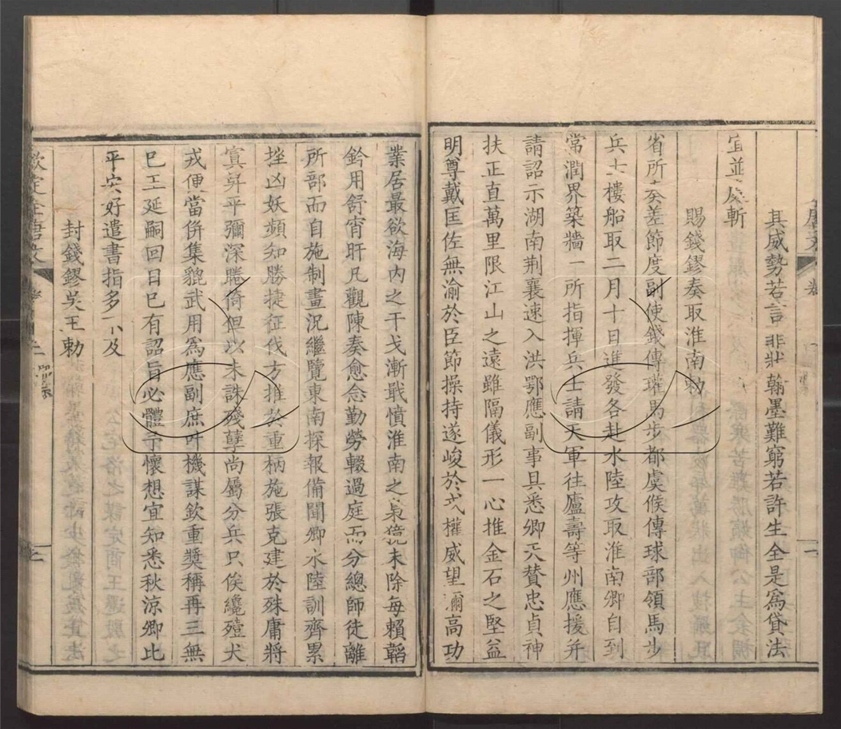 其威勢若言非狀翰墨難窮若許生全是爲貸法
宜並處斬
賜錢鏐奏取淮南勅
省所奏差節度副使錢傳璙馬步都虞候傳球部領馬步
兵士樓船取二月十日進發各赴水陸攻取淮南卿自到
常潤界築牆一所指揮兵士請天軍往廬壽等州應援并
請詔示湖南荆襄速入洪鄂應副事具悉卿天贊忠貞神
扶正直萬里限江山之遠雖隔儀形一心推金石之堅益
明尊戴匡佐無渝於臣節操持遂峻於戎權威望彌高功
業居最欲海内之干戈漸戢憤淮南之梟獍未除每賴韜
鈐用舒宵旰凡觀陳奏愈念勤勞輟過庭而分總師徒離
所部而自施制畫況繼覽東南探報備聞卿水陸訓齊累
挫凶妖頻知勝捷征伐方推於重柄施張克建於殊庸將
寘昇平彌深勝倚狟以未誅殘孽尚屬分兵只俟纔殪犬
戎便當併集貔武用爲應副庶叶機謀欽重奬稱再三無
已王延嗣回日已有詔旨必體予懷想宜知悉秋涼卿比
平安好遣書指多不及
封錢鏐吳王勅
欽定全唐文